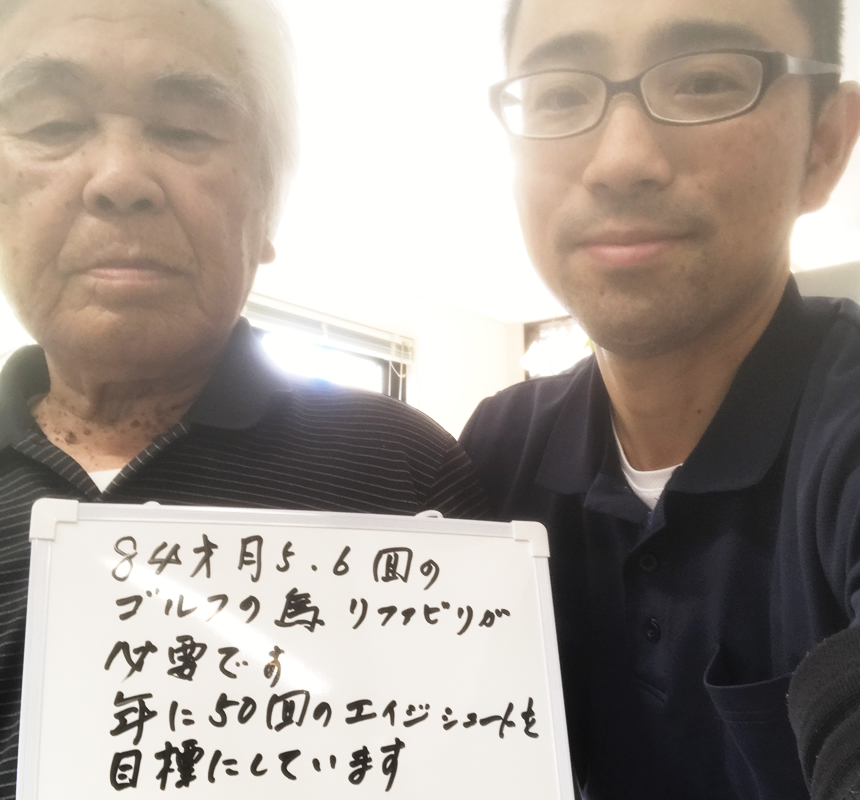 84才月5.6回の
ゴルフの為リファビリが
必要です
年に50回のエイジシュートを
目標にしています